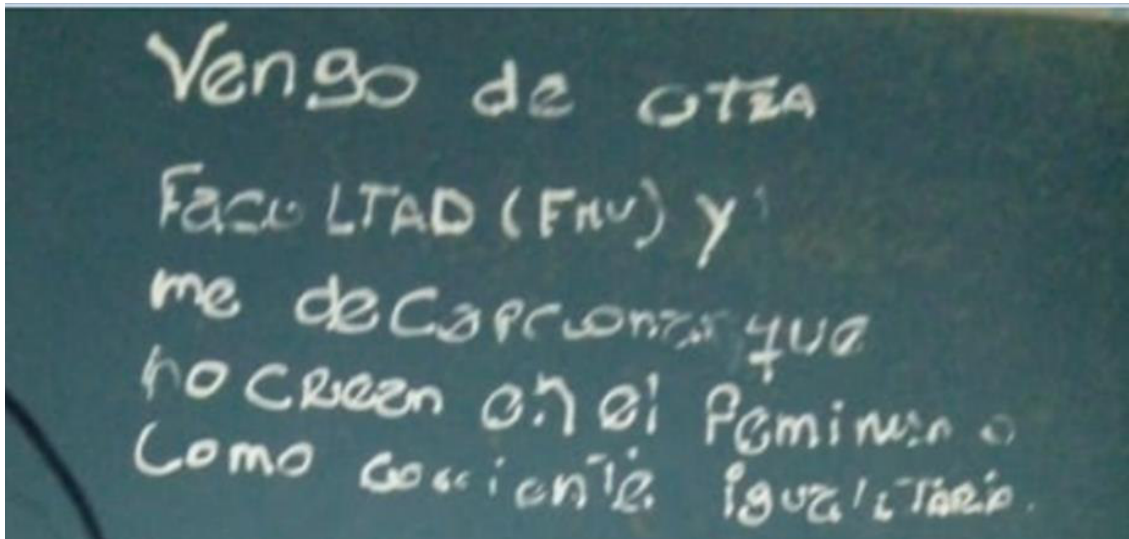 Vengo de OTRA
FacuLTAD (FMV) y
me decepciona que
no CReen en el Feminismo
Como corriente igualiTARia.